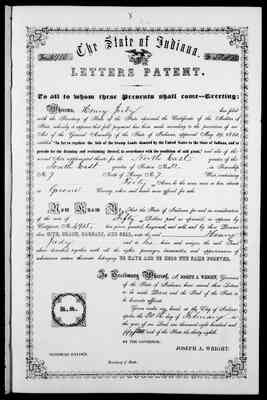 The State of Indiana.
LETTERS PATENT.
To all to whom these Presents shall come—Greeting:
Whereas, Henry has filed
with the Secretary of State of the State aforesaid the Certificate of the Auditor of
State, whereby it appears that full payment has been made according to the provisions of an
Act of the General Assembly of the State of Indiana, approved May 29, 1852,
entitled "An Act to regulate the Sale of the Swamp Lands donated by the United States to the State of Indiana, and to
provide for the draining and reclaiming thereof, in accordance with the condition of said grant," and also of the
several Acts supplemental thereto for the North East quarter of the
South East quarter of Section in Township
No. 7 North of Range No. 7 West containing
Forty Acres, be the same more or less, situate
in Greene County, when said lands were offered for sale.
Now Know Ye, That the State of Indiana, for and in consideration
of the sum of Fifty Dollars paid as aforesaid, as appears by
Certificate No. has given, granted, bargained, and sold, and by these Presents
does GIVE, GRANT, BARGAIN, AND SELL, unto the said Henry
and to heirs and assigns, the said Tract
above described, together with all the rights, privileges, immunities, and appurtenances of
whatsoever nature thereunto belonging, TO HAVE AND TO HOLD THE SAME FOREVER.
In Testimony Whereof, I, JOSEPH A. WRIGHT, Governor
of the State of Indiana, have caused these Letters
to be made Patent, and the Seal of the State to
be hereunto affixed.
Given under my hand, at the City of Indiana-
polis, the day of February in
the year of our Lord one thousand eight hundred and
of the State the thirty-eighth.
BY THE GOVERNOR:
JOSEPH A. WRIGHT.
Secretary of State.